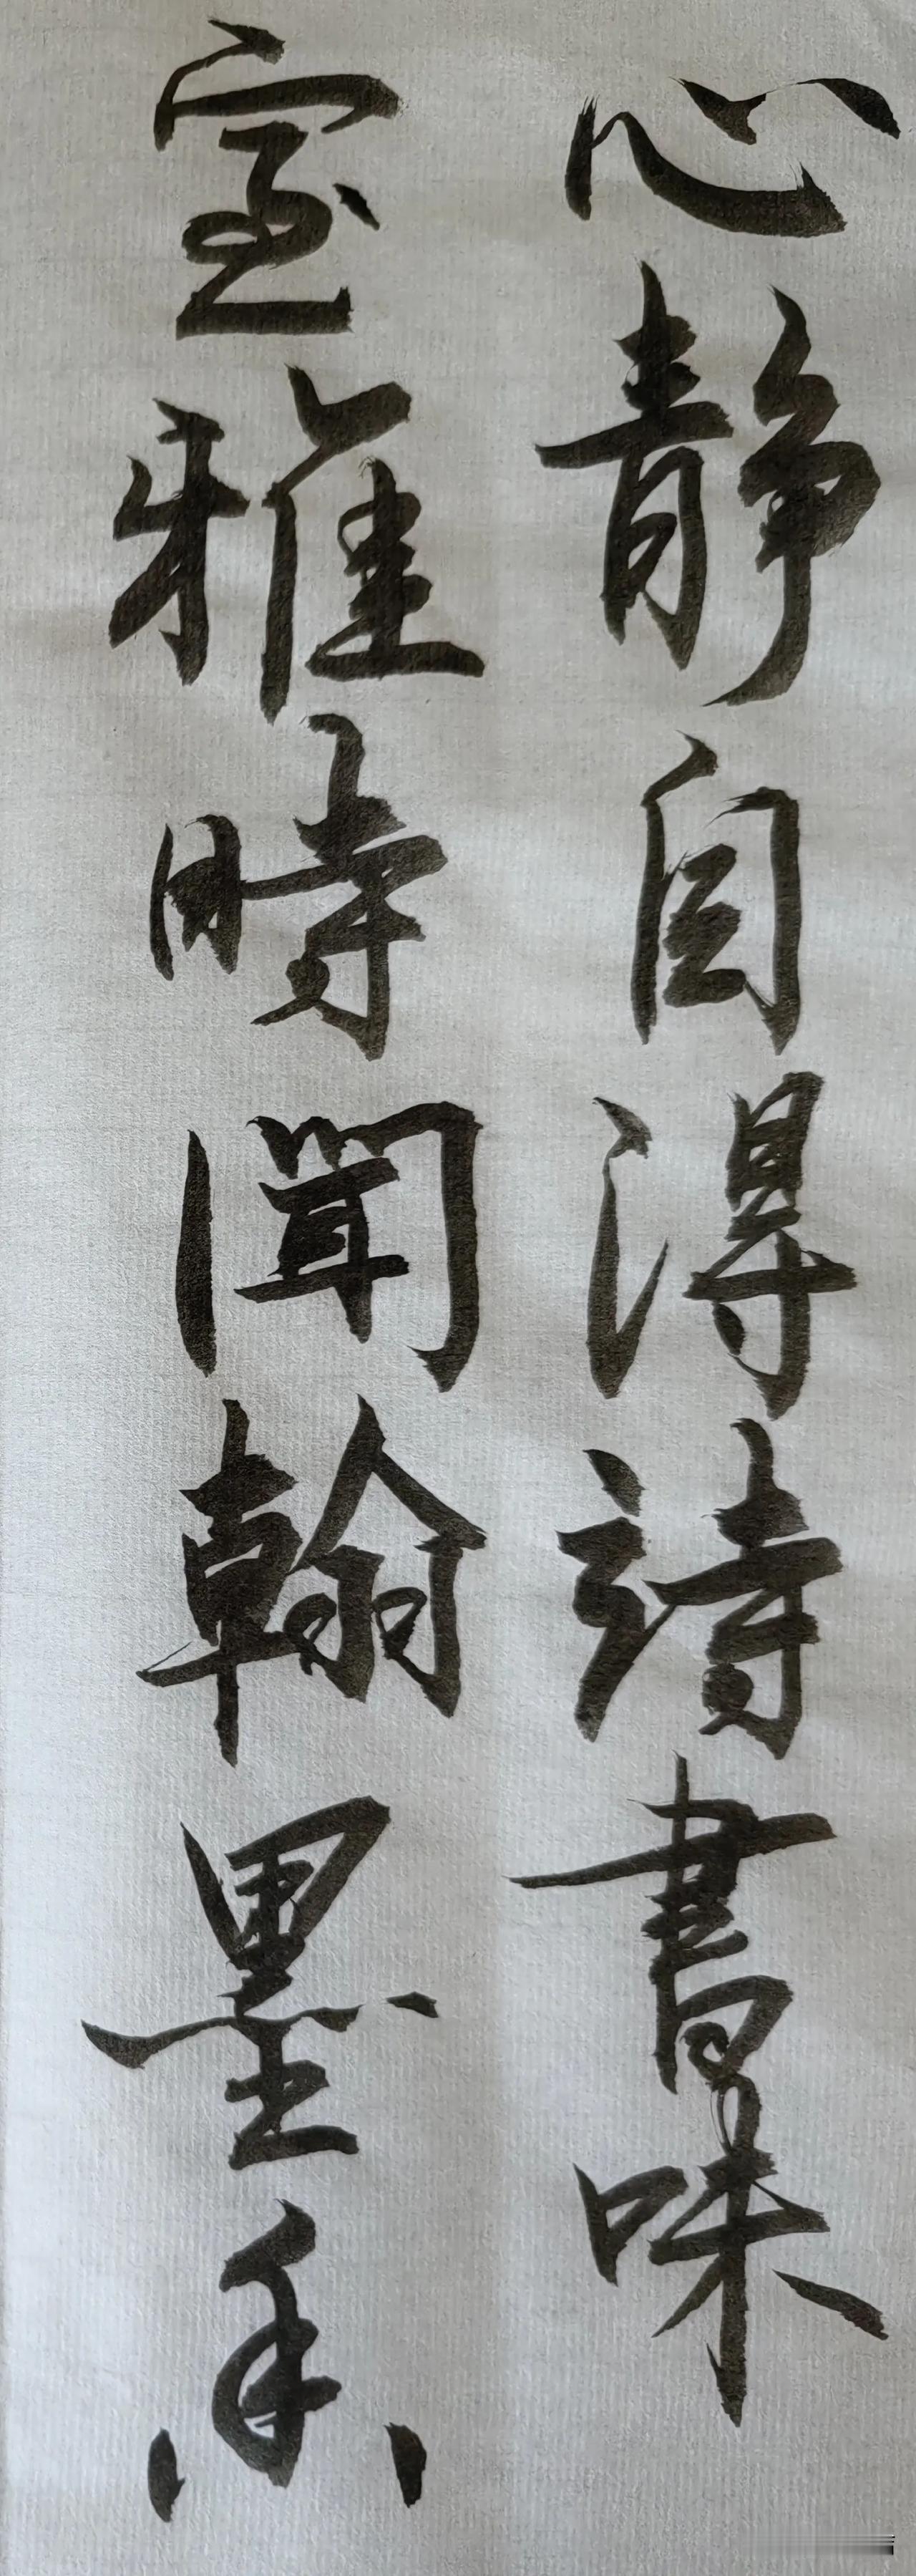 心静自得詩書味
室雅時聞翰墨香